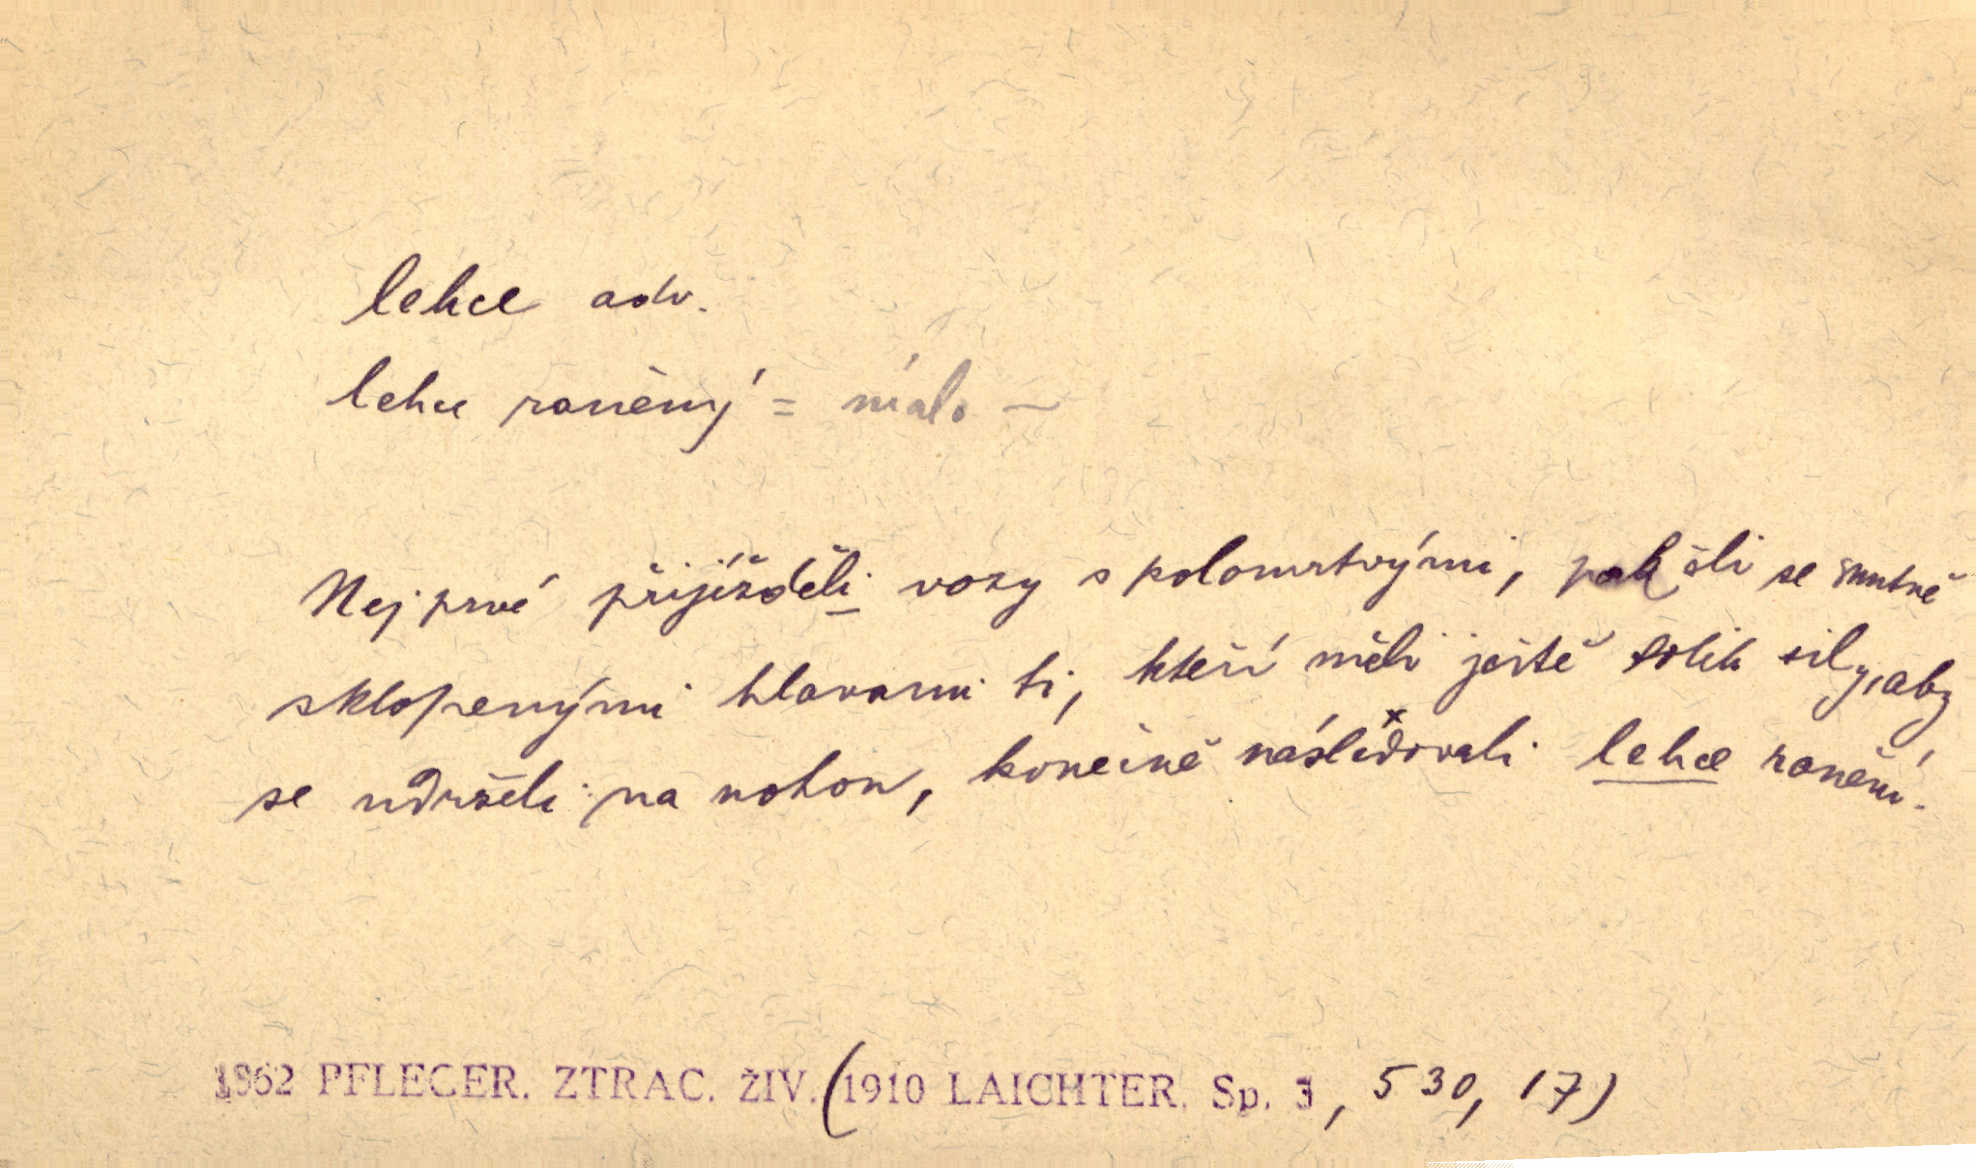 lehce adv.
lehce raněný = málo —
Nejprvé přijížděli vozy s polomrtvými, pak šli se smutně
sklopenými hlavami ti, kteří měli ještě tolik sily, aby
se udrželi na nohou, konečně náslídovali lehce ranění.
1862 PFLEGER. ZTRAC. ŽIV. (1910 LAICHTER. Sp. 3, 530, 17)